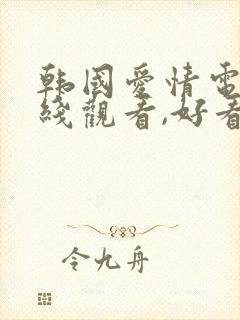 韩國愛情電
綫觀看,好看
令九舟